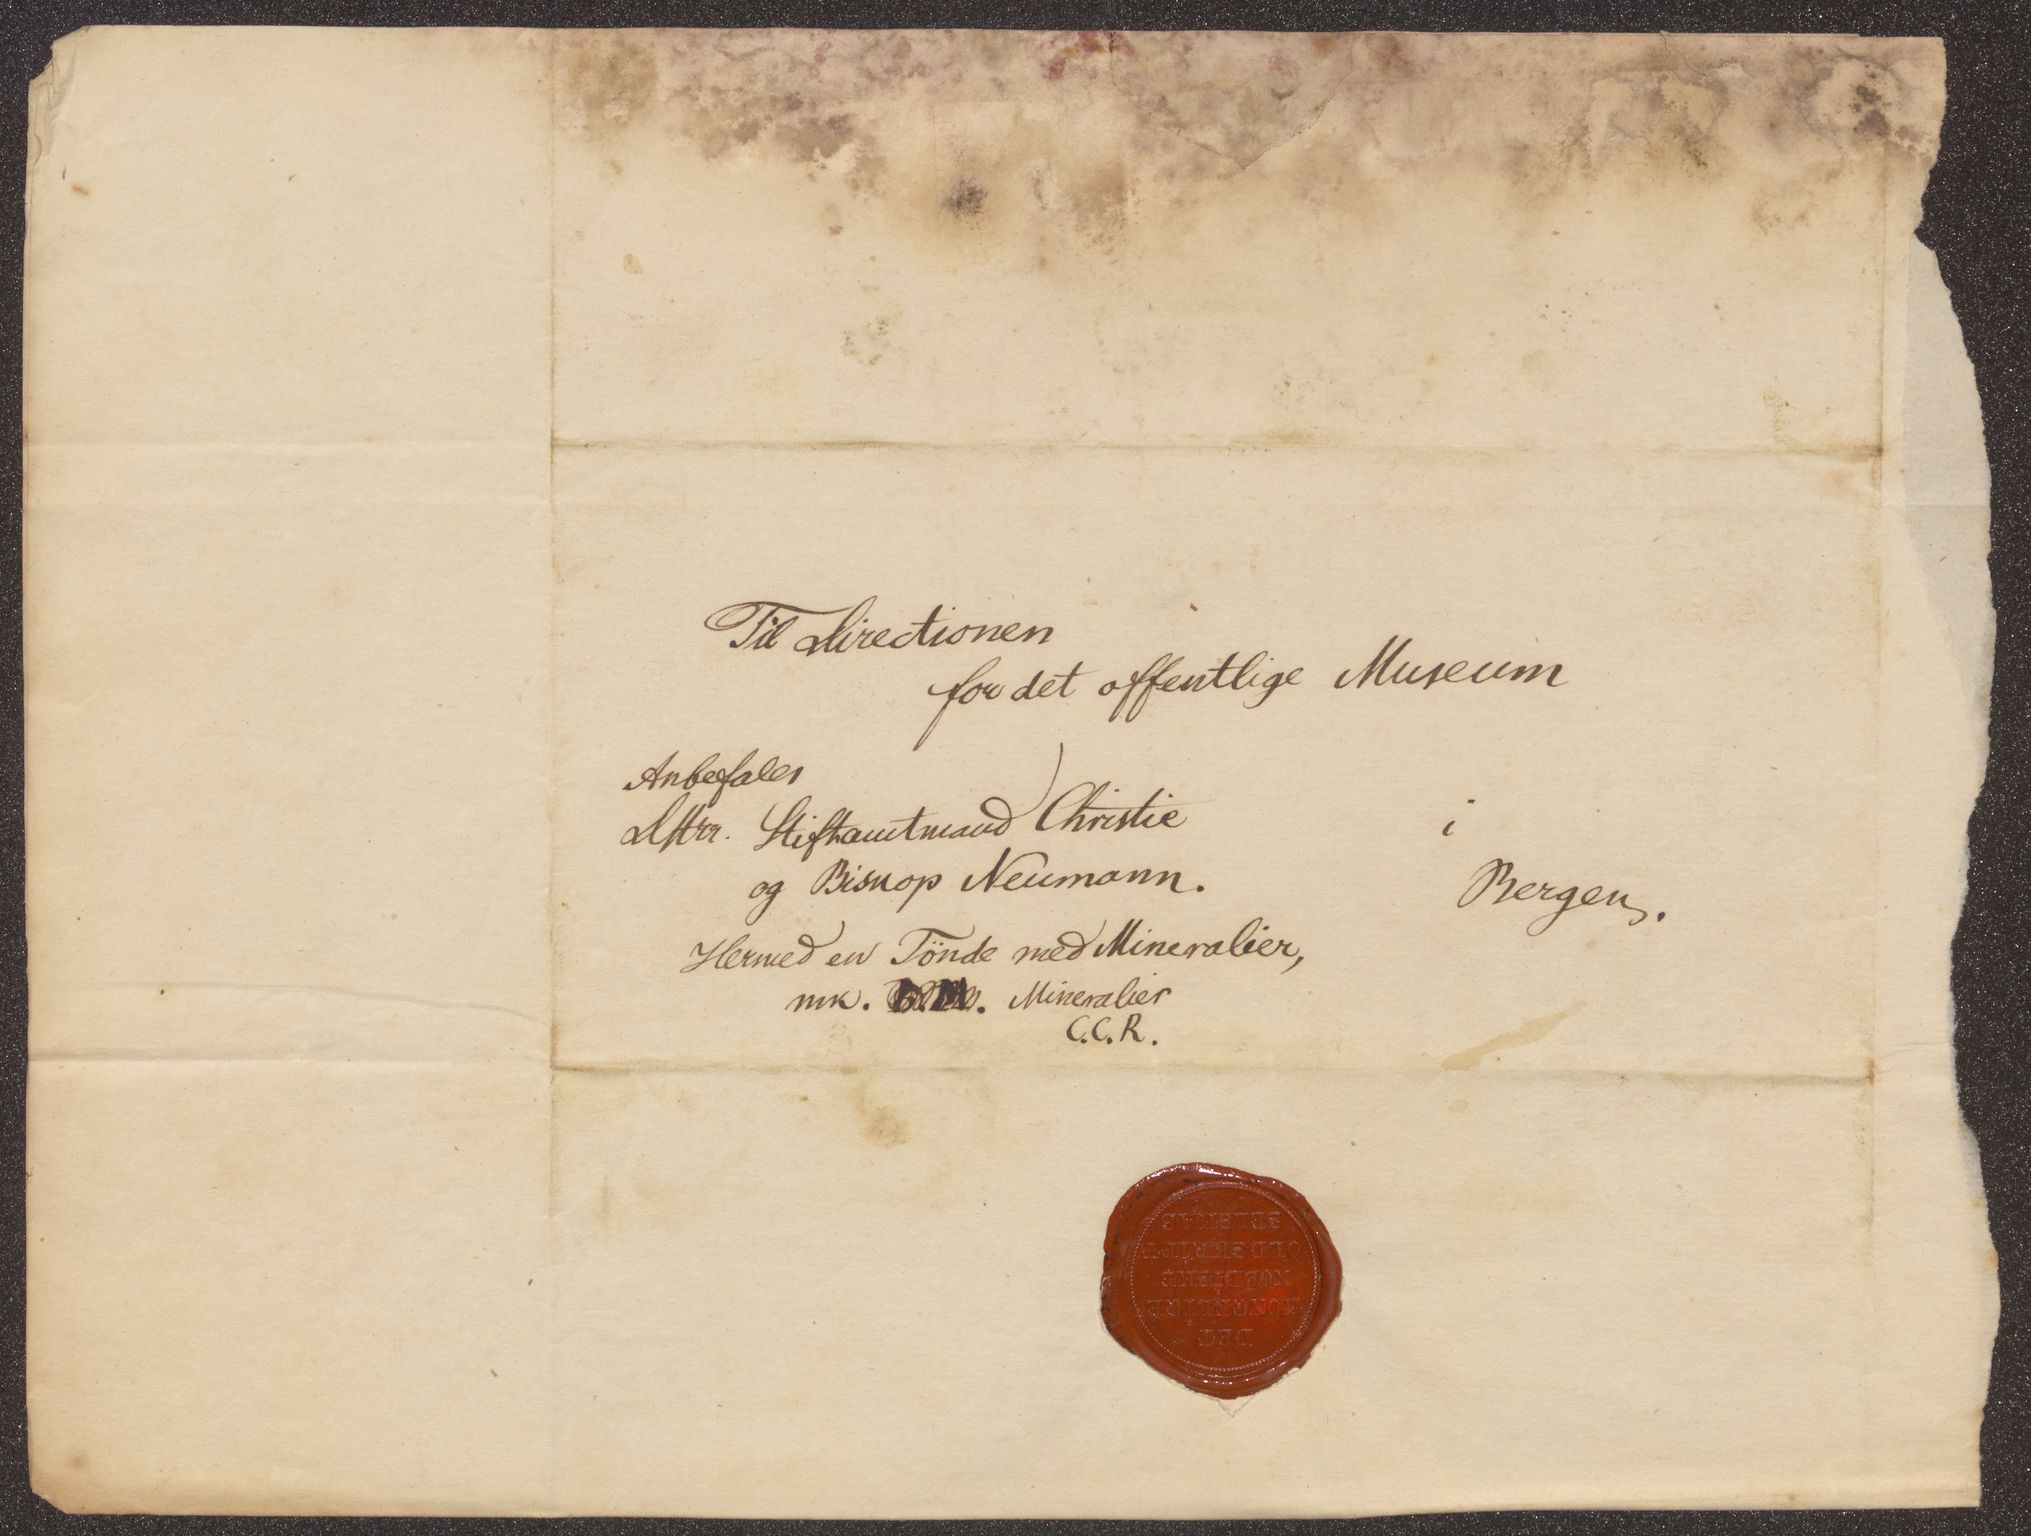 Til Directionen
for det offentlige Museum
Anbefales
DHrr. Stiftamtmand Christie
og Biskop Neumann.
i
Bergen.
Hermed en Tönde med Mineralier,
mk. Mineralier
C.C.R.
DET
KONGELIGE
NORDISKE
OLDSKRIFT
SELSKAB